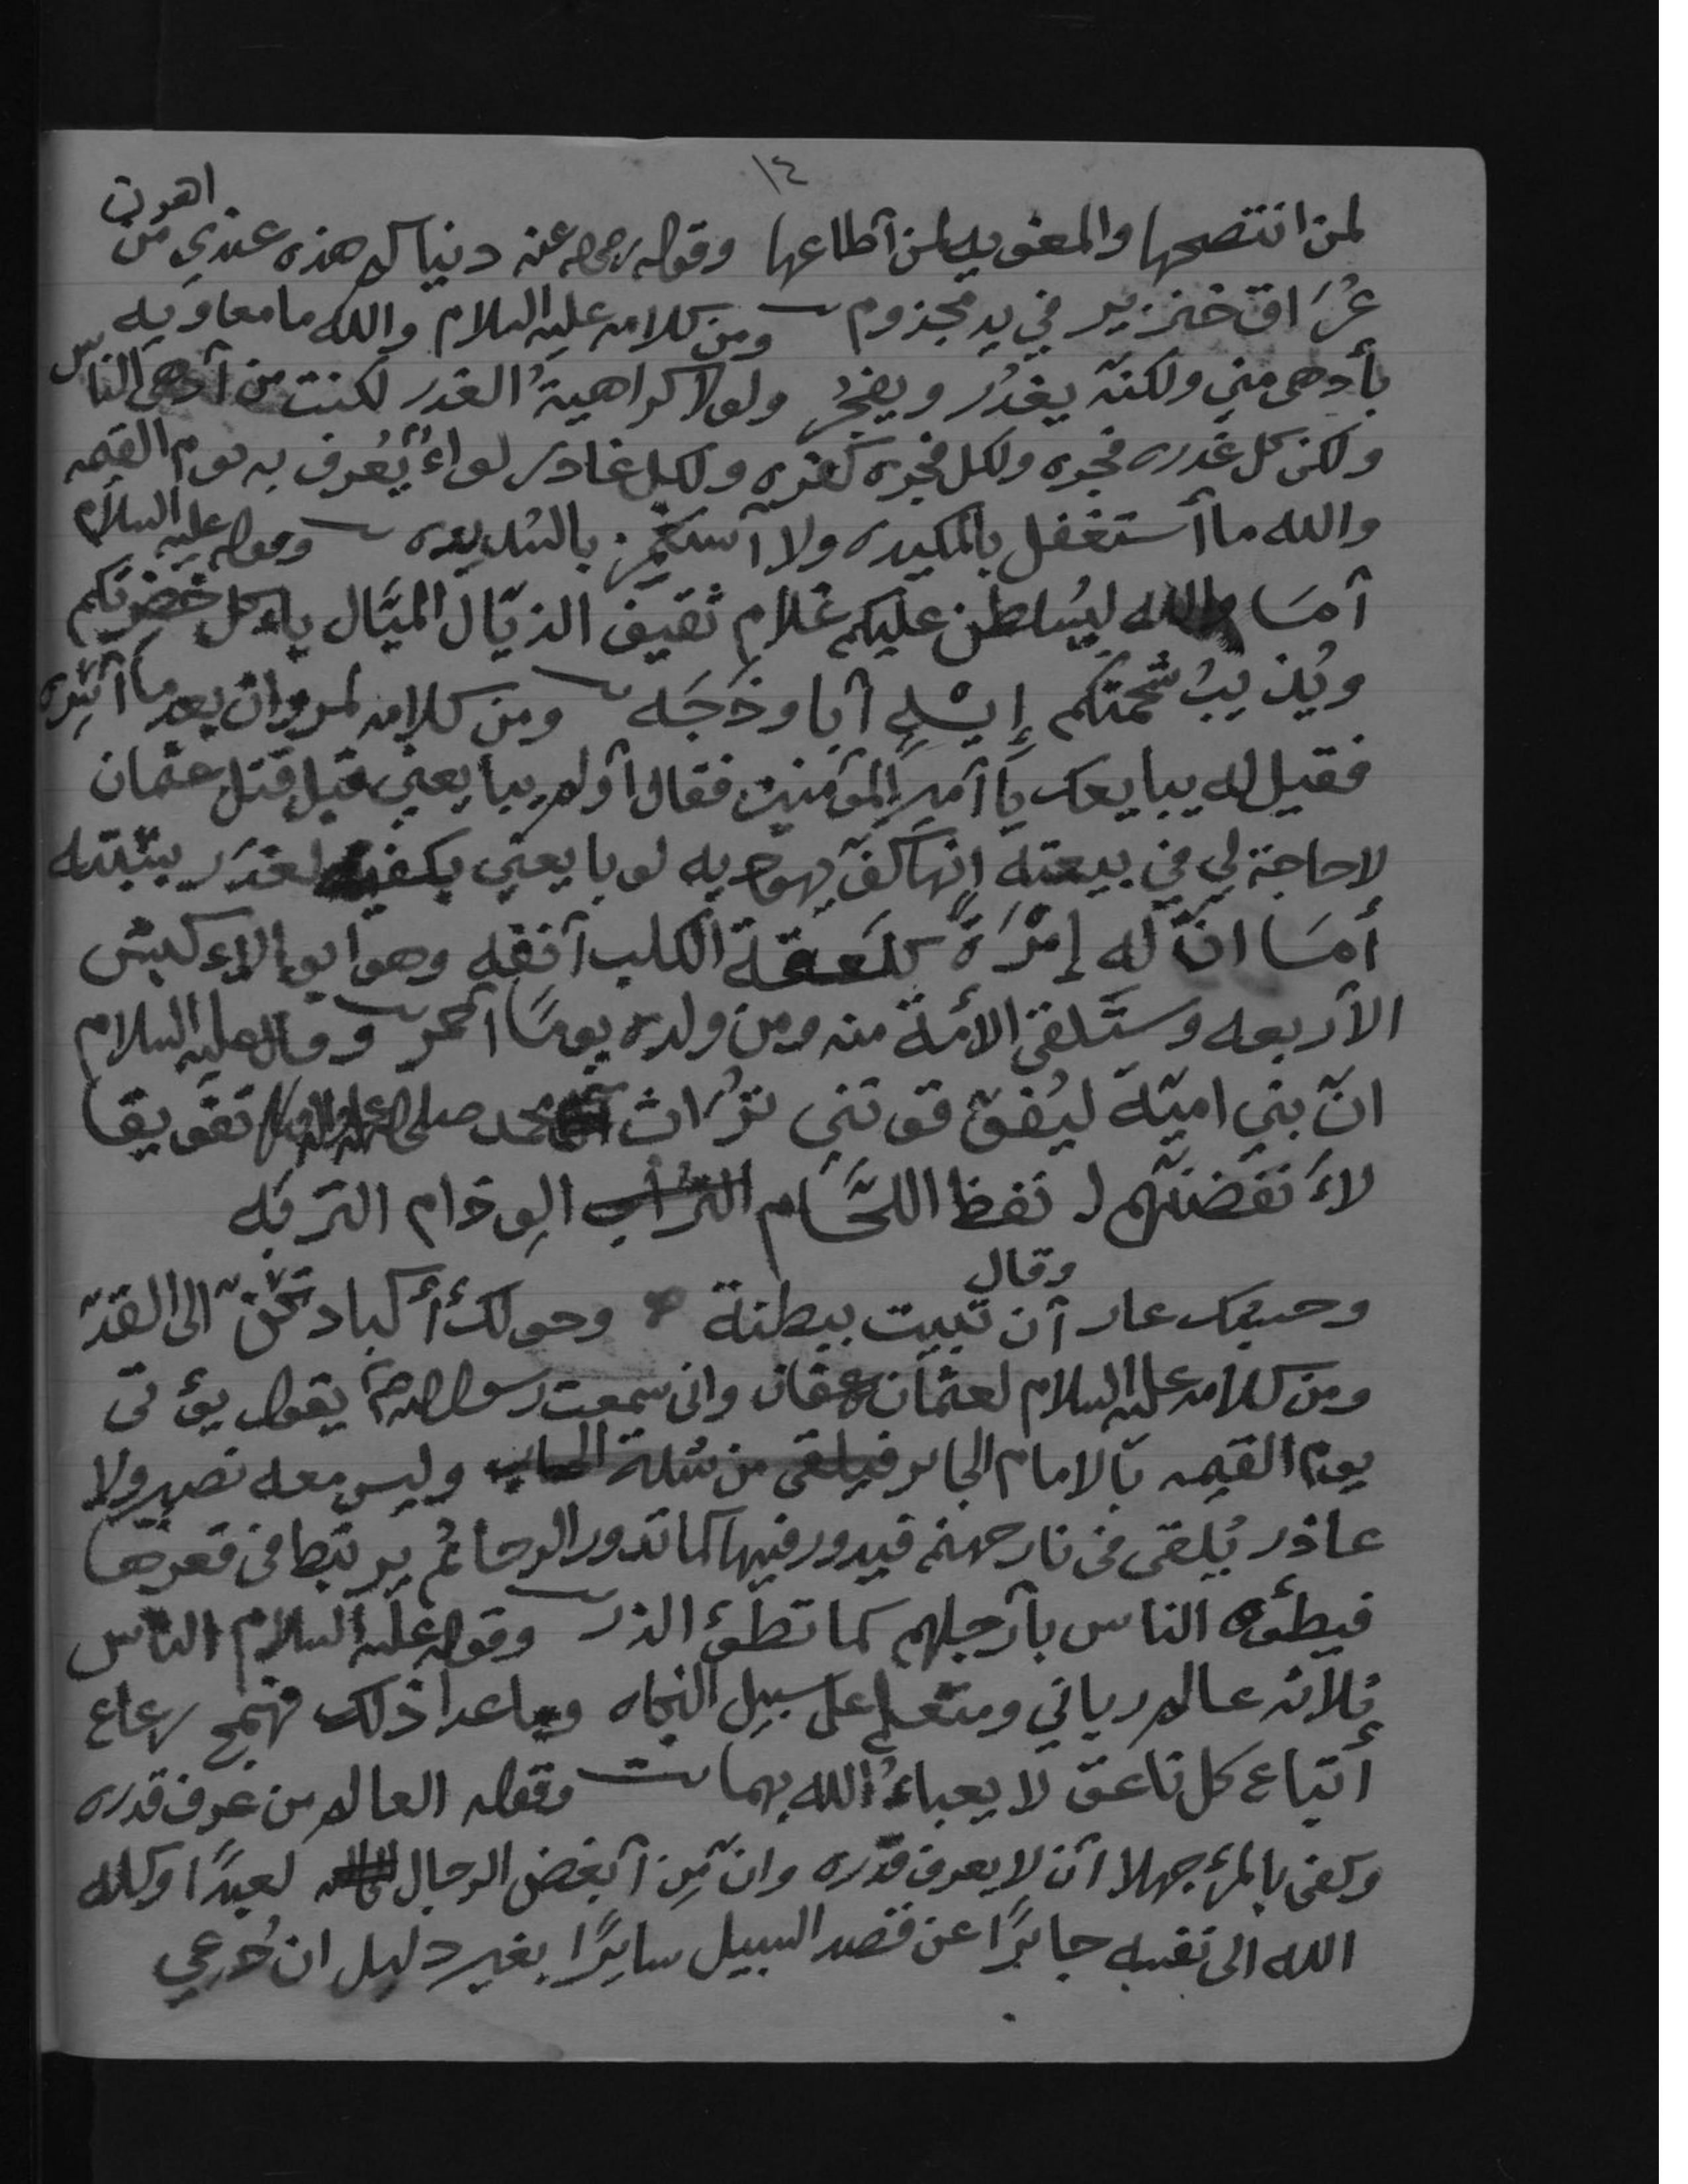 ١٤
لمن انتصحها والمغويه لمن أطاعها وقوله رضي الله عنه دنياكم هذه عندي من اهون
عُرَاق خنزير في يد مجذوم ومن كلامه عليه السلام والله ما معاويه
بأدهى مني ولكنّه يغدُر ويفجُر ولولا كراهيةُ الغدر لكنت من أدهى الناس
ولكن كل غدره فجره ولكل فجره كفره ولكل غادر لواءٌ يُعرف به يوم القيمه
والله ما أستغفل بالمكيده ولا أستغمز بالشديده وقوله عليه السلام
أمَا والله ليُسلطن عليكم غلام ثقيف الذيّال الميّال ياءكل خضرتكم
ويُذيبُ شحمتكم إيـْـهٍ أبا وذَحَه ومن كلامه لمروان بعد ما أسره
فقيل له يبايعك يا أمير المؤمنين فقال أولم يبايعني قبل قتل عثمان
لا حاجة لي في بيعته إنها كفّ يهوديه لو بايعني بكفه لغدَر بسبته
أمَا انّ له إمْرَةً كلَعقة الكلب أنفه وهو أبو الاءكبش
الأربعه وستلقى الأمّة منه ومن ولده يومًا أحمر وقال عليه السلام
انّ بني اميّة ليُفوّقونني تُراث محمد صلى الله عليه واله تفويقا
لاءَنفضنّهم نفظ اللحَّام الوِذام التربَه
وقال
وحسبك عار أن تبيت ببطنة وحولك أكباد تحنّ الى القدّ
ومن كلامه عليه السلام لعثمان عفان وانى سمعت رسول الله صلعم يقول يؤتى
يوم القيمه بالامام الجاير وليس معه نصير ولا
عاذر يُلقى فى نار جهنم فيدور فيها كما تدور الرحا ثم يرتبط فى قعرها
فيطئوه الناس بأرجلهم كما تطئ الذر وقوله عليه السلام الناس
ثلاثه عالم رباني ومتعلم على سبيل النجاه وماعدا ذلك فهمج رعاع
أتباع كل ناعق لا يعباءُ الله بهم وقوله العالم من عرف قدره
وكفى بالمرء جهلا أن لا يعرف قدره وانّ مِن أبغض الرجال لعبدًا وكله
الله الى نفسه جايرًا عن قصد السبيل سايرًا بغير دليل ان دُعي